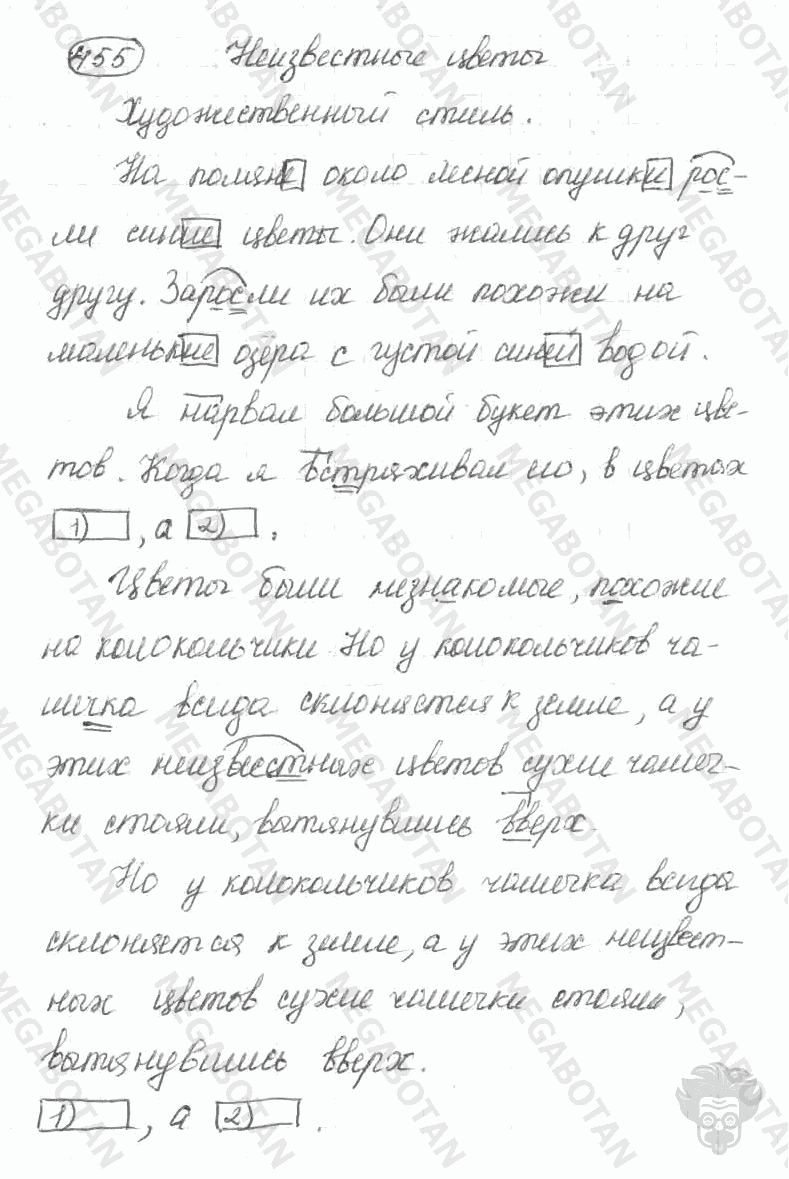 455 Неизвестные цветы
Художественный стиль.
На поляне около лесной опушки рос-
ли синие цветы. Они жались к друг
другу. Заросли их были похожи на
маленькие озёра с густой синей водой.
Я нарвал большой букет этих цве-
тов. Когда я встряхивал его, в цветах
1) , а 2) .
Цветы были незнакомые, похожие
на колокольчики Но у колокольчиков ча-
шечка всегда склоняется к земле, а у
этих неизвестных цветов сухие чашеч-
ки стояли, вытянувшись вверх.
Но у колокольчиков чашечка всегда
склоняется к земле, а у этих неизвест-
ных цветов сухие чашечки стояли,
вытянувшись вверх.
1) , а 2) .
MEGABOTAN